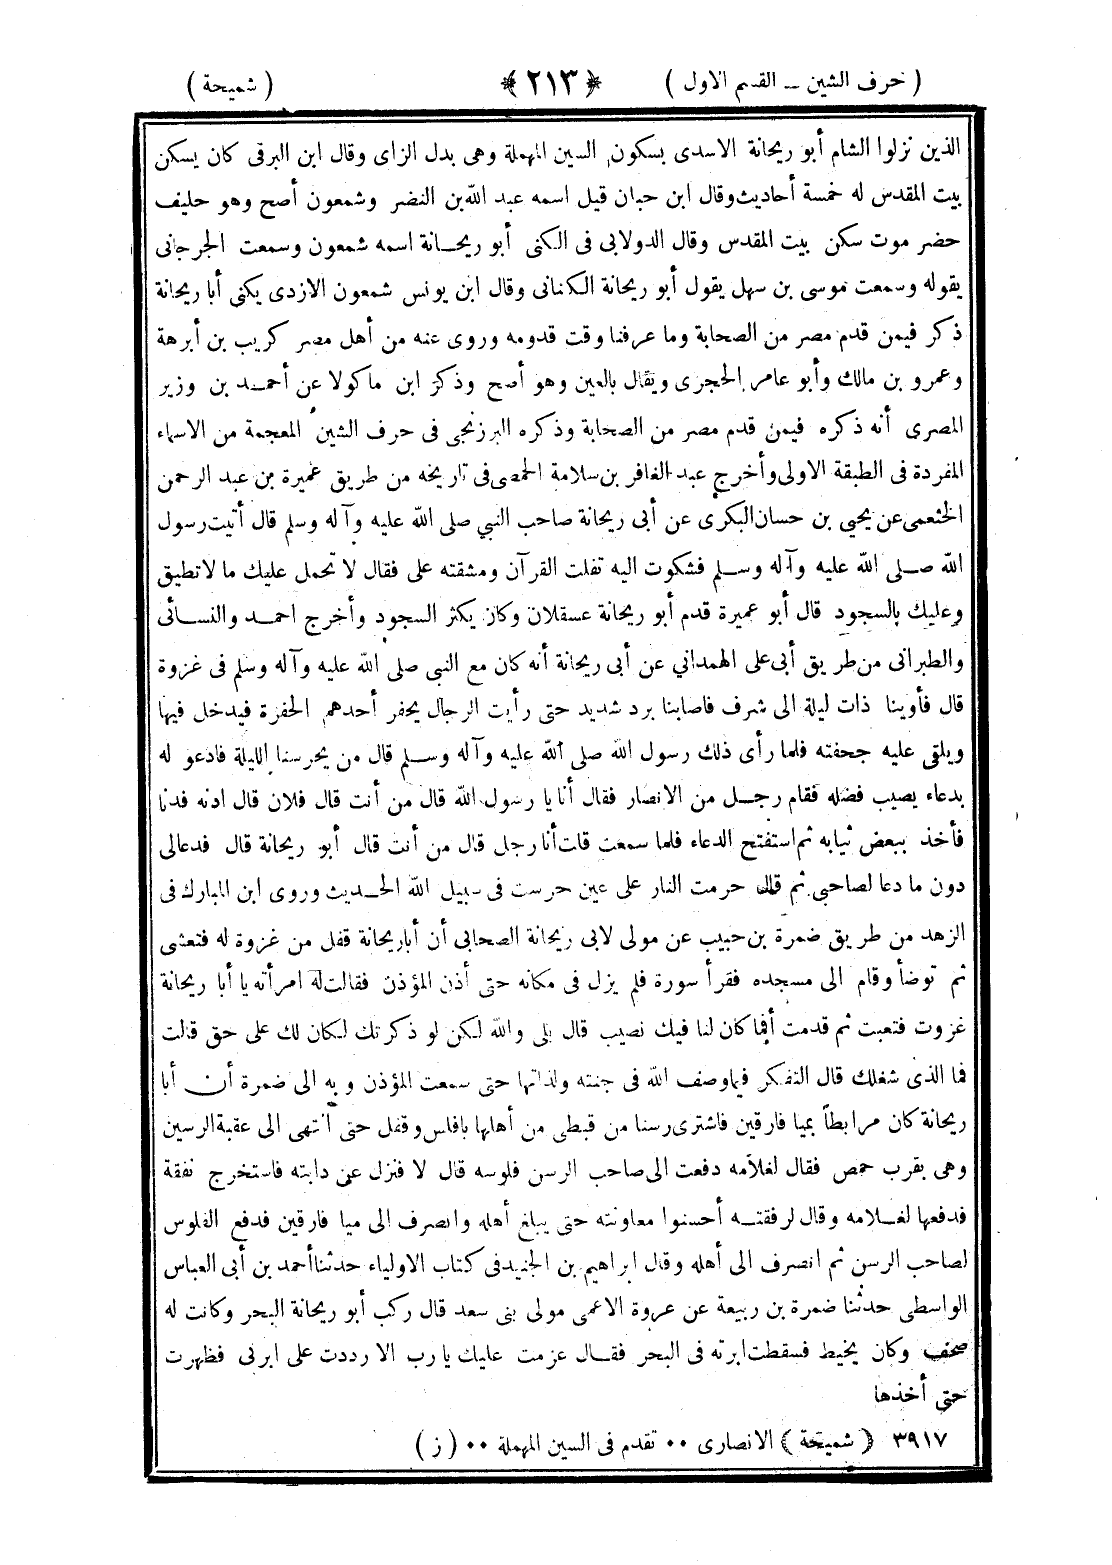 ( حرف الشين ــ القسم الاول ) ﴿ ٢١٣ ﴾ ( شميحة )
الذين نزلوا الشام أبو ريحانة الاسدى بسكون السين المهملة وهى بدل الزاى وقال ابن البرقى كان يسكن
بيت المقدس له خمسة أحاديث وقال ابن حبان قيل اسمه عبد الله بن النضر وشمعون أصح وهو حليف
حضر موت سكن بيت المقدس وقال الدولابى فى الكنى أبو ريحانة اسمه شمعون وسمعت الجرجانى
يقوله وسمعت موسى بن سهل يقول أبو ريحانة الكنانى وقال ابن يونس شمعون الازدى يكنى أبا ريحانة
ذكر فيمن قدم مصر من الصحابة وما عرفنا وقت قدومه وروى عنه من أهل مصر كريب بن أبرهة
وعمرو بن مالك وأبو عامر الحجرى ويقال بالعين وهو أصح وذكر ابن ماكولا عن أحمد بن وزير
المصرى أنه ذكره فيمن قدم مصر من الصحابة وذكره البرزنجى فى حرف الشين المعجمة من الاسماء
المفردة فى الطبقة الاولى وأخرج عبد الغافر بن سلامة الحمصى فى تاريخه من طريق عميرة بن عبد الرحمن
الخثعمى عن يحيى بن حسان البكرى عن أبى ريحانة صاحب النبي صلى الله عليه وآله وسلم قال أتيت رسول
الله صلى الله عليه وآله وسلم فشكوت اليه تفلت القرآن ومشقته على فقال لا تحمل عليك ما لا تطيق
وعليك بالسجود قال أبو عميرة قدم أبو ريحانة عسقلان وكان يكثر السجود وأخرج احمد والنسائى
والطبرانى من طريق أبى على الهمداني عن أبى ريحانة أنه كان مع النبي صلى الله عليه وآله وسلم فى غزوة
قال فأوينا ذات ليلة الى شرف فاصابنا برد شديد حتى رأيت الرجال يحفر أحدهم الحفرة فيدخل فيها
ويلقى عليه جحفته فلما رأى ذلك رسول الله صلى الله عليه وآله وسلم قال من يحرسنا الليلة فادعو له
بدعاء يصيب فضله فقام رجل من الانصار فقال أنا يا رسول الله قال من أنت قال فلان قال ادنه فدنا
فأخذ ببعض ثيابه ثم استفتح الدعاء فلما سمعت قات أنا رجل قال من أنت قال أبو ريحانة قال فدعالى
دون ما دعا لصاحبى ثم قال حرمت النار على عين حرست فى سبيل الله الحديث وروى ابن المبارك فى
الزهد من طريق ضمرة بن حبيب عن مولى لابى ريحانة الصحابى أن أبا ريحانة قفل من غزوة له فتعشى
ثم توضأ وقام الى مسجده فقرأ سورة فلم يزل فى مكانه حتى أذن المؤذن فقالت له امرأته يا أبا ريحانة
غزوت فتعبت ثم قدمت أفما كان لنا فيك نصيب قال بلى والله لكن لو ذكرتك لكان لك على حق قالت
فما الذى شغلك قال التفكر فيما وصف الله فى جنته ولذاتها حتى سمعت المؤذن وبه الى ضمرة أن أبا
ريحانة كان مرابطاً بميا فارقين فاشترى رسنا من قبطى من أهلها بافلس وقفل حتى انتهى الى عقبة الرسين
وهى بقرب حمص فقال لغلامه دفعت الى صاحب الرسن فلوسه قال لا فنزل عن دابته فاستخرج نفقة
فدفعها لغلامه وقال لرفقته أحسنوا معاونته حتى يبلغ أهله وانصرف الى ميا فارقين فدفع الفلوس
لصاحب الرسن ثم انصرف الى أهله وقال ابراهيم بن الجنيد فى كتاب الاولياء حدثنا أحمد بن أبى العباس
الواسطى حدثنا ضمرة بن ربيعة عن عروة الاعمى مولى بنى سعد قال ركب أبو ريحانة البحر وكانت له
صحف وكان يخيط فسقطت ابرته فى البحر فقال عزمت عليك يا رب الا رددت على ابرتى فظهرت
حتى أخذها
٣٩١٧ ﴿ شميحة ﴾ الانصارى ٠٠ تقدم فى السين المهملة ٠٠ ( ز )